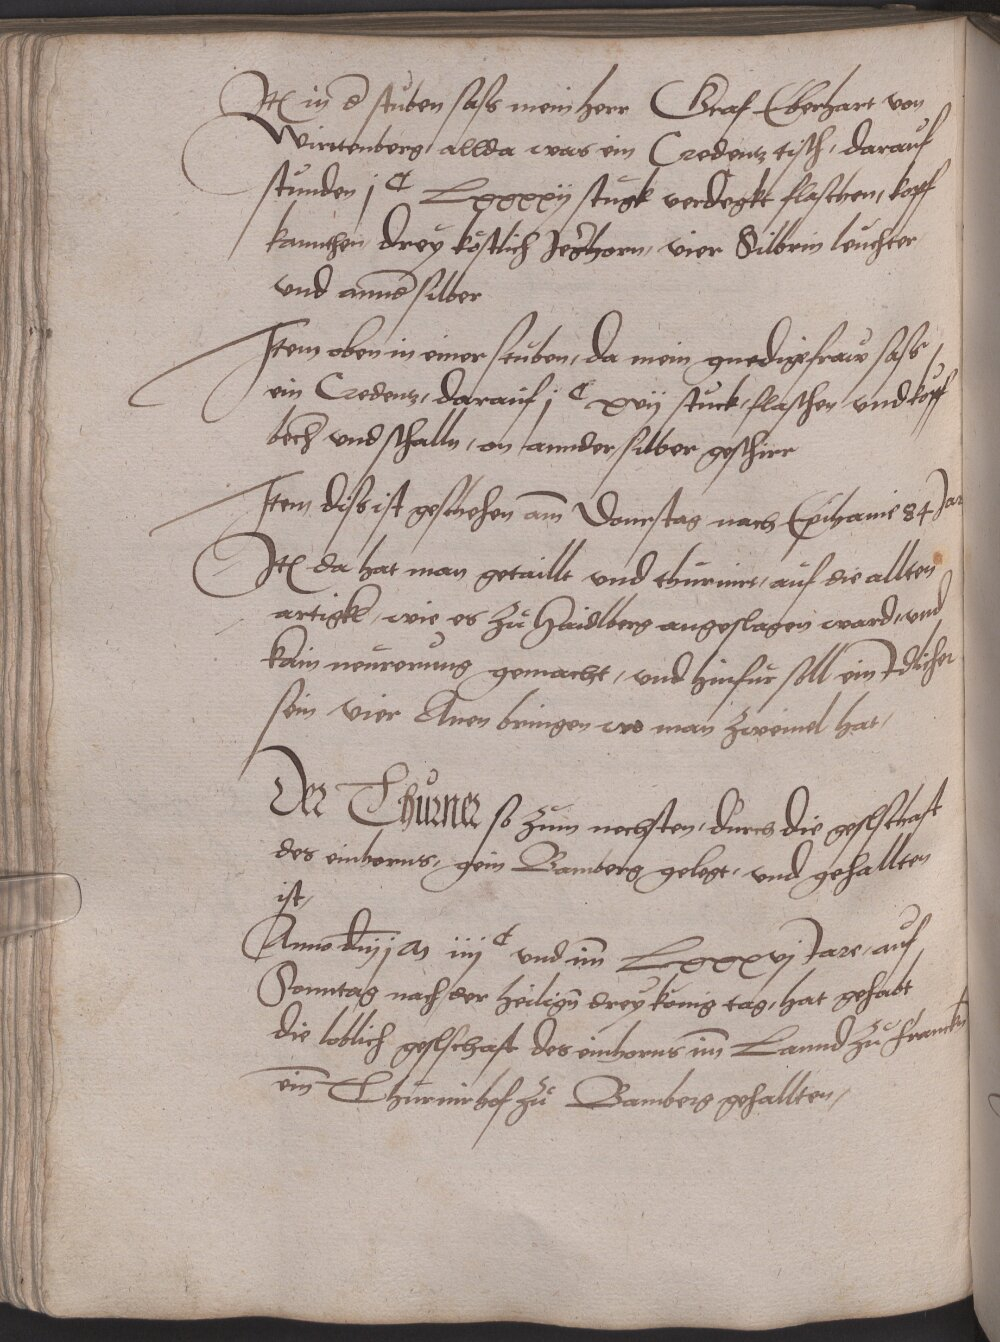 Itē in d̄ stuben saß mein herr Graf Eberhart von
Wirttenberg, allda was ein Credentz tisch, darauf
stunden j C Lxxxxij stugk verdegkt flaschen, kopf
kannthen, drey köstlich Jeghorn, vier Silbrin leuchter
vnd annd̄ silber
Item oben in einer stuben, da mein gnedige fraw saß
ein Credentz, darauf j C xvij stuck, flaschen vnd köpf
bech̄ vnd schalln, on annder silber geschirr
Item diß ist geschehen am̄ Donrstag nach Epiphanie 84 Jar
Itē da hat man getaillt vnd thurnirt, auf die allten
artigkl, wie es zů Haidlberg angeslagen ward, vnd
kain neurerung gemacht, vnd hinfur soll ein Idlicher
sein vier Anen bringen wo man zweiuel hat,
Der Thurner so zům nechsten, durch die geslschaft
des einhorns, gein Bamberg gelegt, vnd gehallten
ist,
Anno dn̄j j M iiij C vnd im̄ Lxxxvj Jare, auf
Sonntag nach der heilign̄ drey konig tag, hat gehabt
die loblich geslschaft des einhorns im̄ Lannd zů Franckn̄
ein̄ Thurnirhof zů Bamberg gehallten,